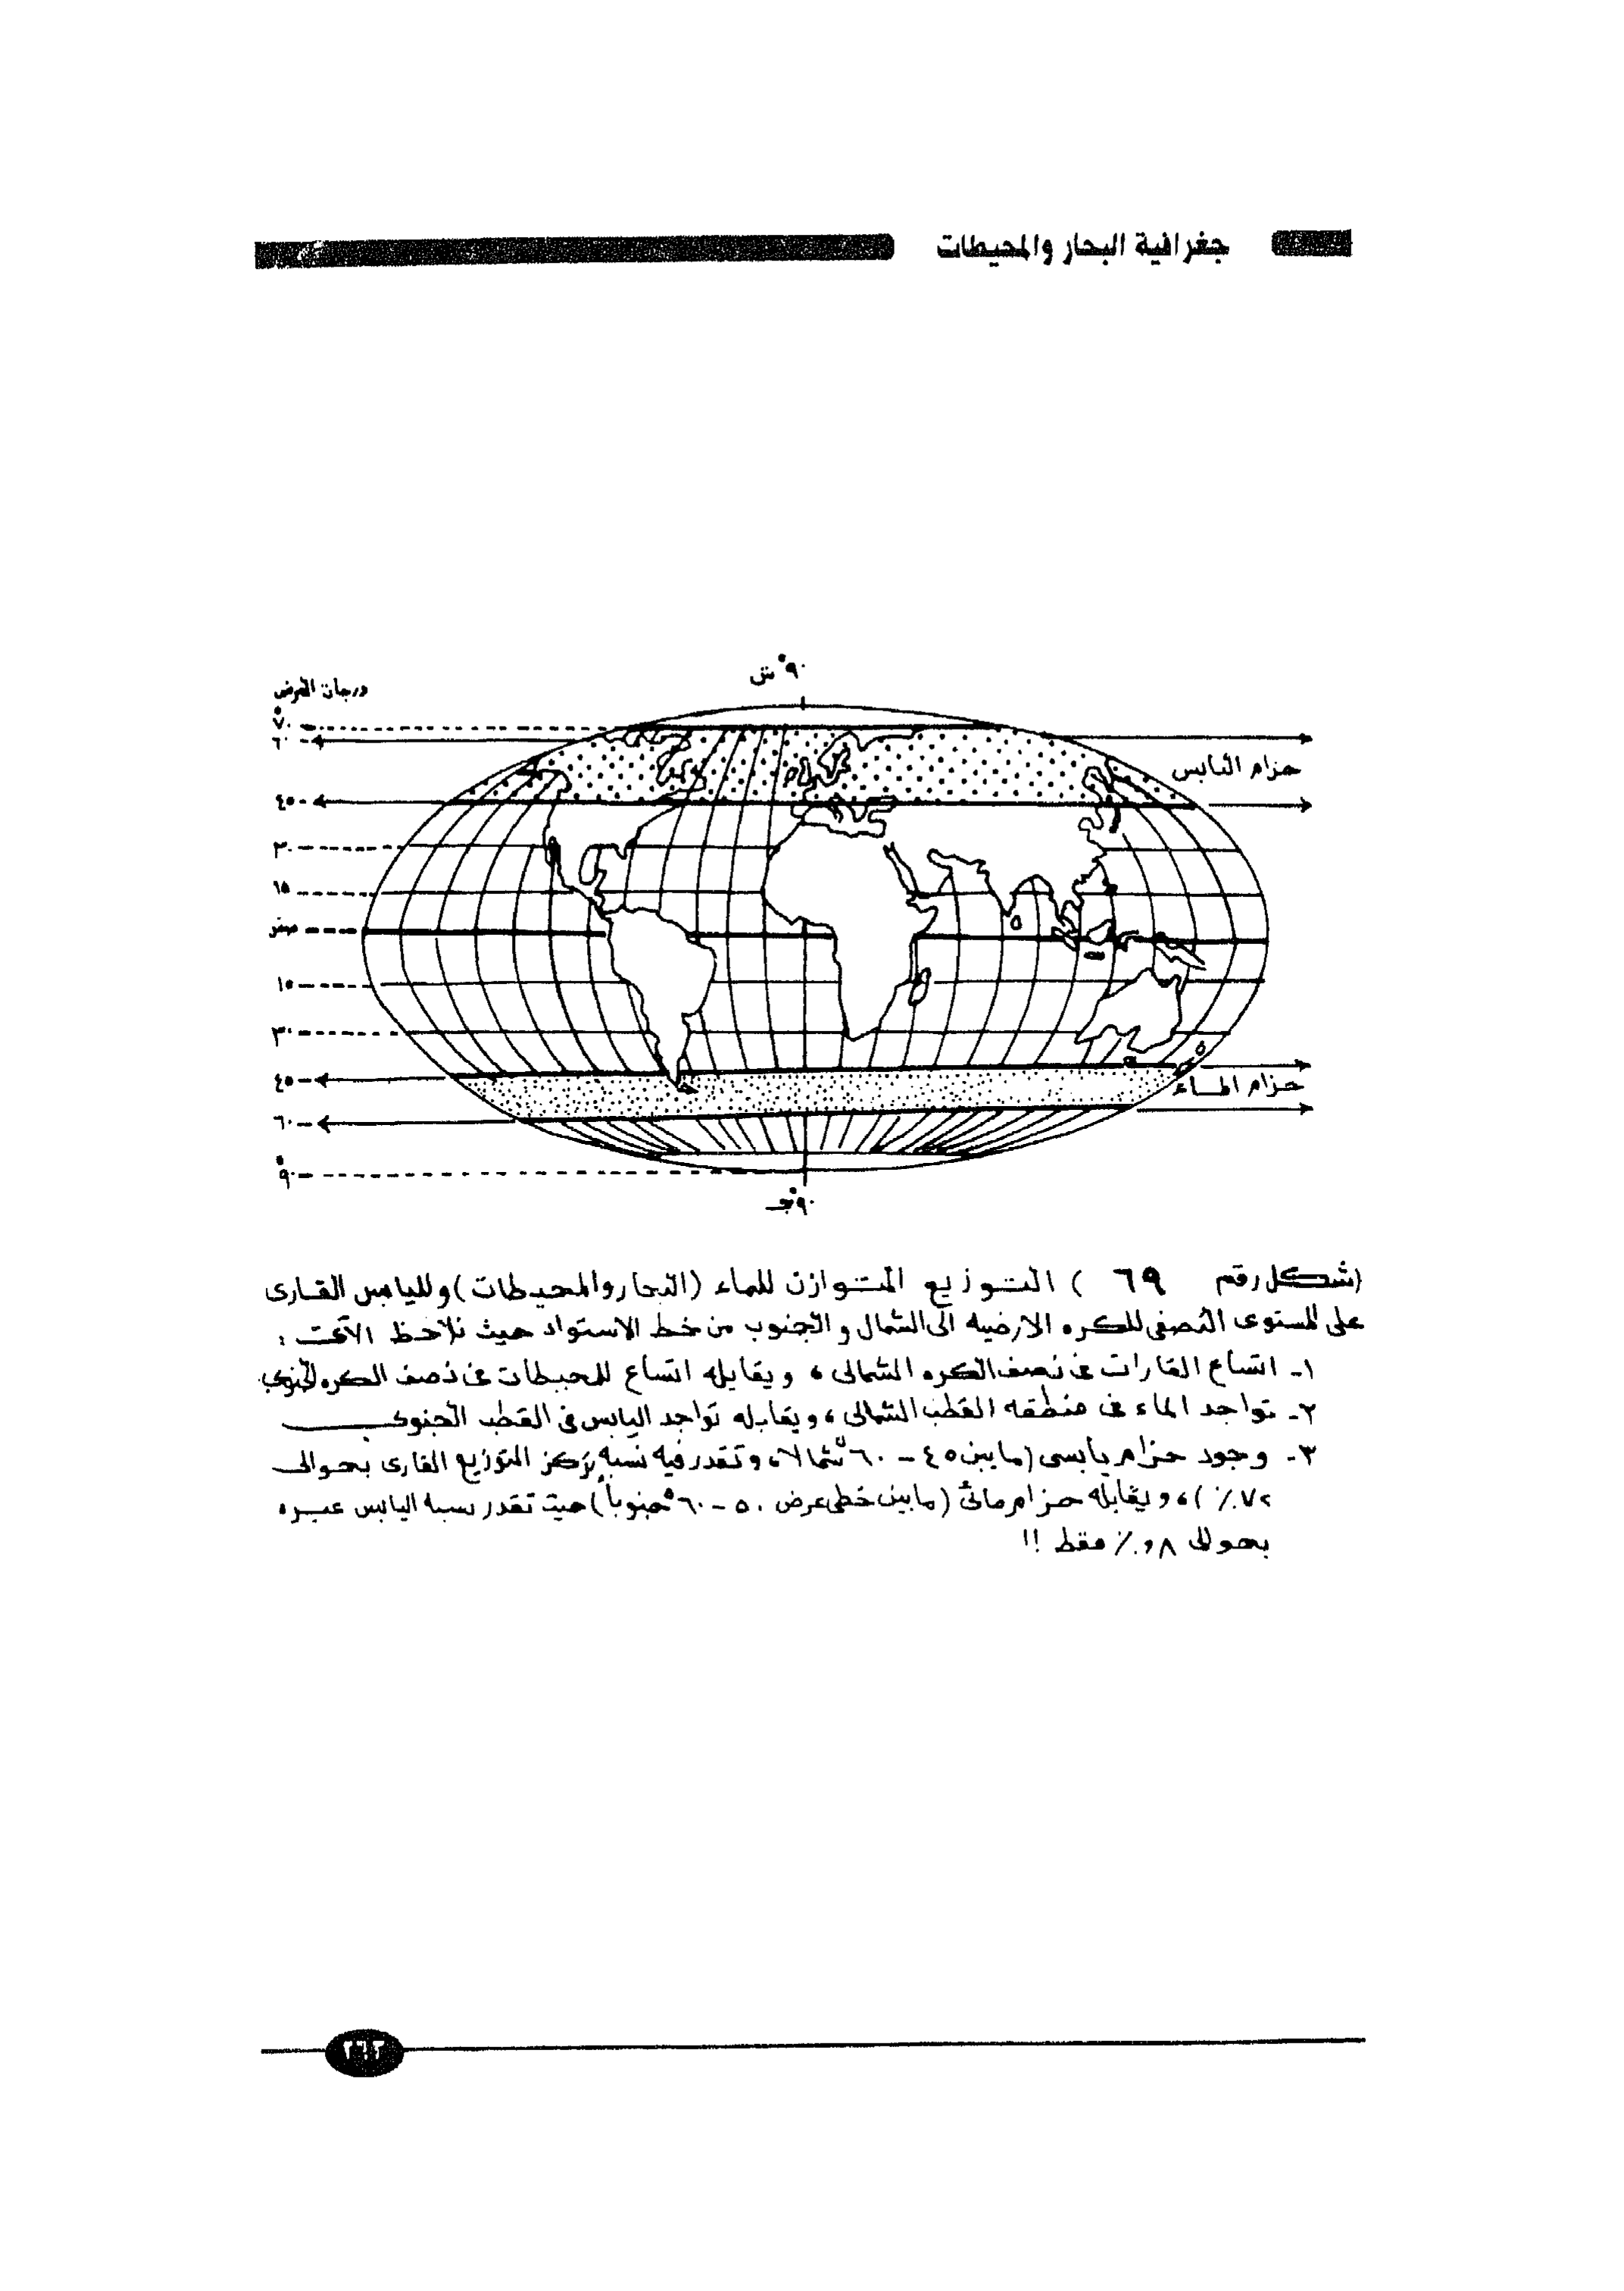 جغرافية البحار والمحيطات
٩٠° ش
درجات العرض
٧٠°
٦٠
حزام اليابس
٤٥
٣٠
١٥
صفر
١٥
٣٠
٤٥
حزام المــاء
٦٠
٩٠°
٩٠° جـ
(شكل رقم ٦٩ ) التوزيع المتوازن للماء (البحار والمحيطات) ولليابس القارى
على المستوى النصفى للكره الارضيه الى الشمال والجنوب من خط الاستواء حيث نلاحظ الآتى :
١- اتساع القارات فى نصف الكره الشمالى ، ويقابله اتساع للمحيطات فى نصف الكره الجنوبى
٢- تواجد الماء فى منطقه القطب الشمالى ، ويقابله تواجد اليابس فى القطب الجنوبى
٣- وجود حزام يابسى (مابين ٤٥ - ٦٠° شمالا، وتقدر فيه نسبه تركز التوزيع القارى بحوالى
٧٢٪ ) ، ويقابله حزام مائى (مابين خطى عرض ٥٠ - ٦٠° جنوباً) حيث تقدر نسبه اليابس عبره
بحوالى ٨و٪ فقط !!